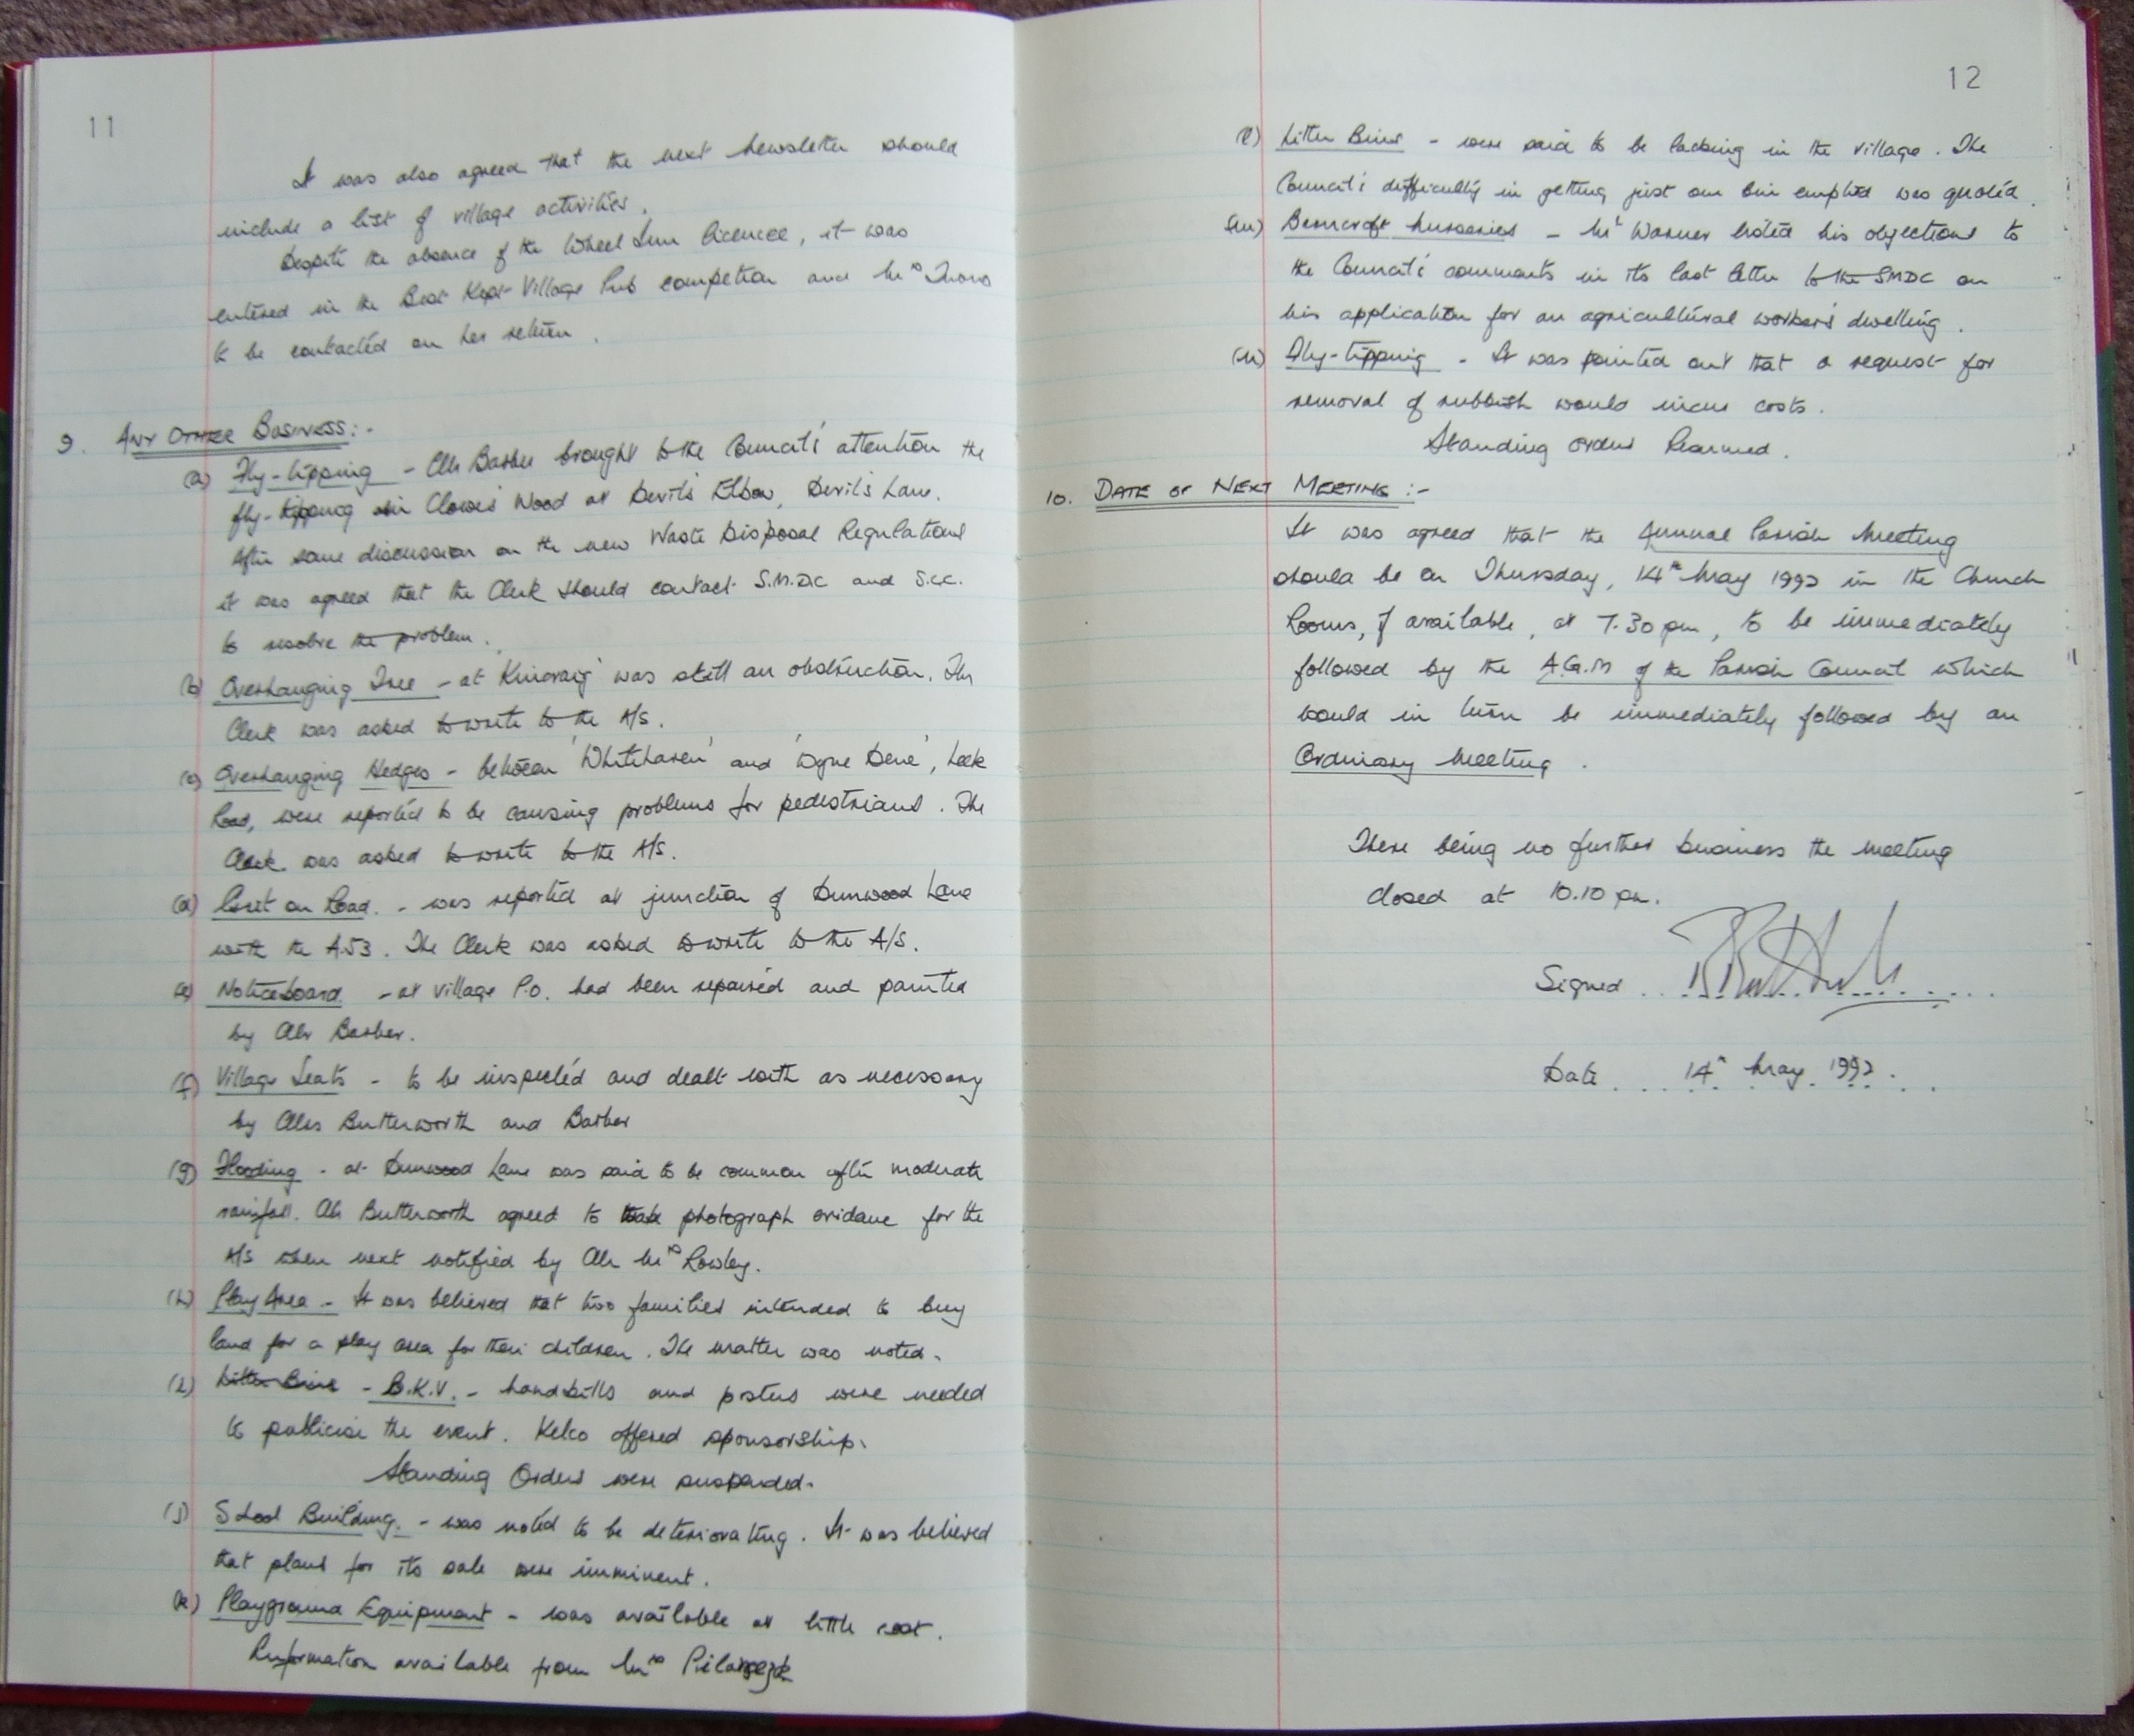 11
It was also agreed that the next Newsletter should
include a list of village activities.
Despite the absence of the Wheel Inn licencee, it was
entered in the Best Kept Village Pub competion and Mrs
to be contacted on her return.
9. ANY OTHER BUSINESS:-
(a) Fly-tipping - Cllr Barber brought to the Council's attention the
fly-tipping in Clowes Wood at Devil's Elbow, Devil's Lane.
After some discussion on the new Waste Disposal Regulations
it was agreed that the Clerk should contact S.M.D.C and S.C.C.
to resolve the problem.
(b) Overhanging Tree - at 'Kincraig' was still an obstruction. The
Clerk was asked to write to the A/S.
(c) Overhanging Hedges - between 'Whitehaven' and 'Wyne Dene', Leek
Road, were reported to be causing problems for pedestrians. The
Clerk was asked to write to the A/S.
(d) on Road. - was reported at junction of Dunwood Lane
with the A53. The Clerk was asked to write to the A/S.
(e) Noticeboard - at village P.O. had been repaired and painted
by Cllr Barber.
(f) Village Seats - to be inspected and dealt with as necessary
by Cllrs Butterworth and Barber
(g) Flooding - at Dunwood Lane was said to be common after moderate
rainfall. Cllr Butterworth agreed to take photograph evidence for the
A/S when next notified by Cllr Mrs Rowley.
(h) Play Area - It was believed that two families intended to buy
land for a play area for their children. The matter was noted.
(i) Litter Bins - B.K.V. - handbills and posters were needed
to publicise the event. Kelco offered sponsorship.
Standing Orders were suspended.
(j) School Building. - was noted to be deteriorating. It was believed
that plans for its sale were imminent.
(k) Playground Equipment - was available at little cost.
Information available from Mrs
12
(l) Litter Bins - were said to be lacking in the village. The
Council's difficulty in getting just one bin emptied was quoted.
(m) Nurseries - Mr Warner listed his objections to
the Council's comments in its last letter to the SMDC on
his application for an agricultural worker's dwelling.
(n) Fly-tipping - It was pointed out that a request for
removal of rubbish would incur costs.
Standing orders Resumed.
10. DATE OF NEXT MEETING :-
It was agreed that the Annual Parish Meeting
should be on Thursday, 14th May 1992 in the Church
Rooms, if available, at 7.30 pm, to be immediately
followed by the A.G.M of the Parish Council which
would in turn be immediately followed by an
Ordinary Meeting.
There being no further business the meeting
closed at 10.10 pm.
Signed
Date 14th May 1992